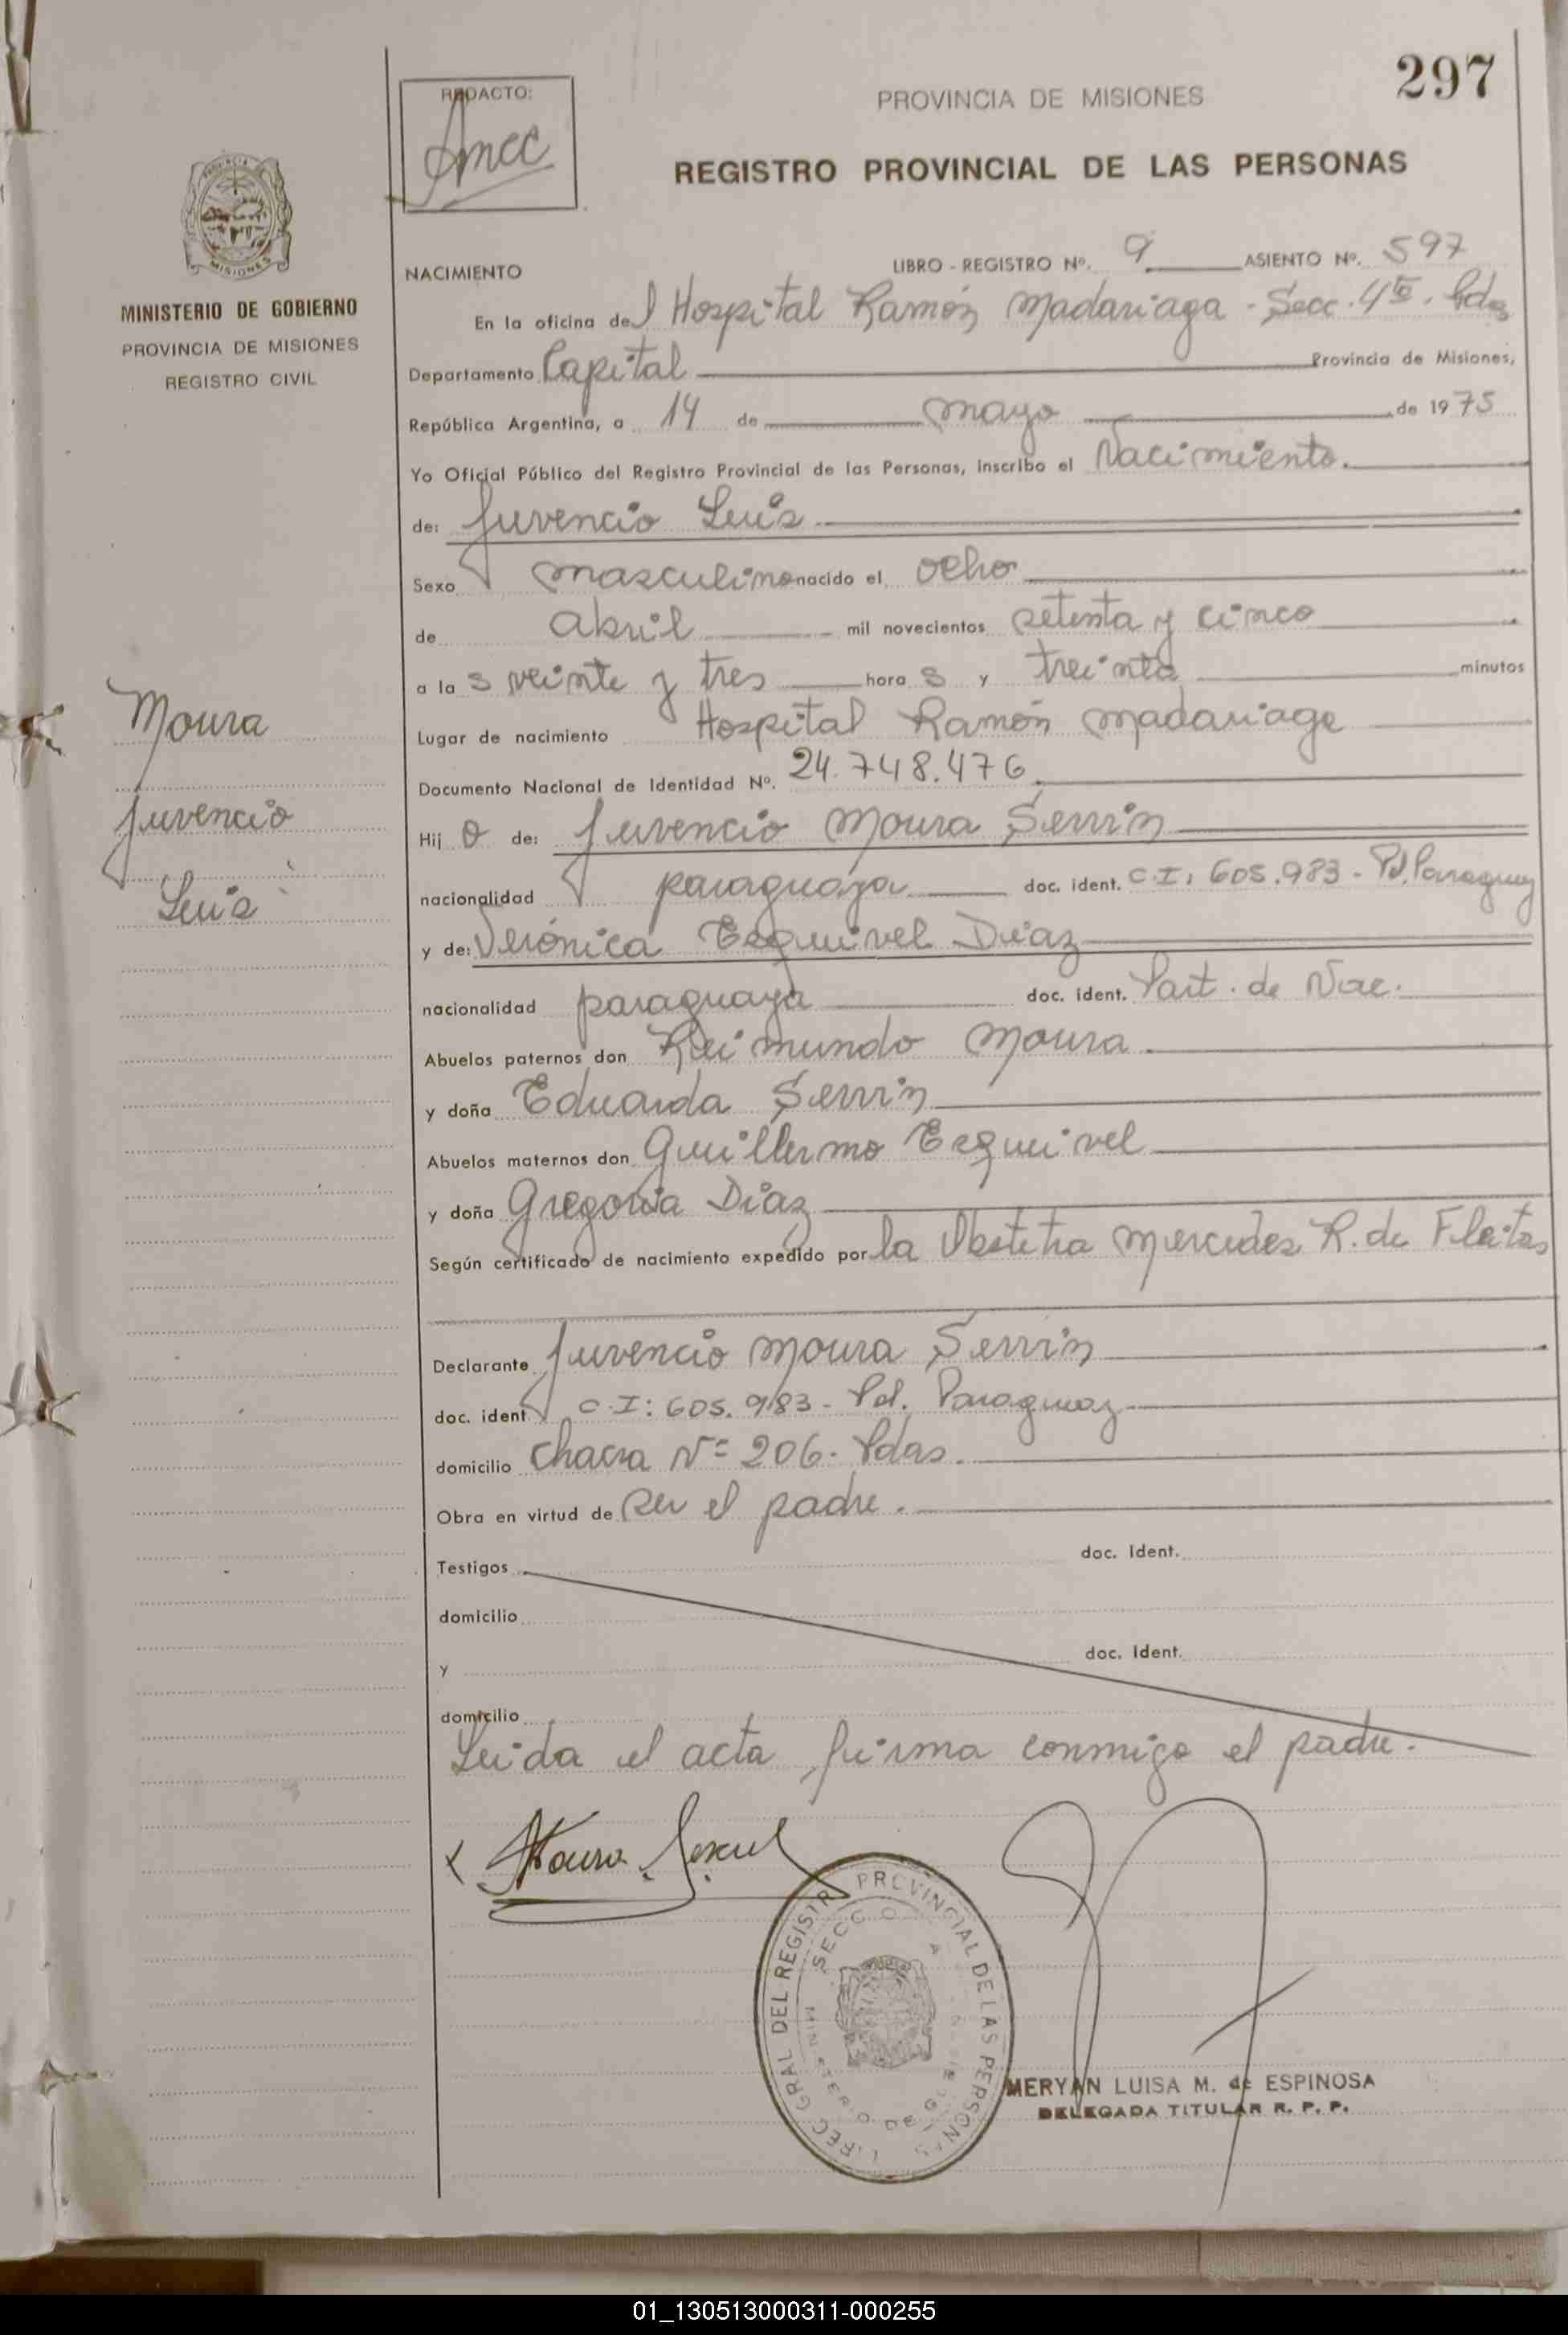 297
REDACTO:
PROVINCIA DE MISIONES
REGISTRO PROVINCIAL DE LAS PERSONAS
MINISTERIO DE GOBIERNO
PROVINCIA DE MISIONES
REGISTRO CIVIL
NACIMIENTO LIBRO - REGISTRO Nº. 9 ASIENTO Nº. 597
En la oficina del Hospital Ramón Madariaga - Secc. 4ta. Pdas
Departamento Capital Provincia de Misiones,
República Argentina, a 14 de mayo de 1975
Yo Oficial Público del Registro Provincial de las Personas, inscribo el Nacimiento.
de: Juvencio Luis
Sexo masculino nacido el ocho
de abril mil novecientos setenta y cinco
a las veinte y tres horas y treinta minutos
Lugar de nacimiento Hospital Ramón Madariaga
Documento Nacional de Identidad Nº. 24.748.476.
Hijo de: Juvencio Moura Servín
nacionalidad paraguaya doc. ident. C.I: 605.983 - Pd. Paraguay
y de: Verónica Esquivel Díaz
nacionalidad paraguaya doc. ident. Part. de Nac.
Abuelos paternos don Reimundo Moura.
y doña Eduarda Servín
Abuelos maternos don Guillermo Esquivel
y doña Gregoria Díaz
Según certificado de nacimiento expedido por la Obstetra Mercedes R. de Fleitas
Declarante Juvencio Moura Servín
doc. ident. C.I: 605.983 - Pd. Paraguay
domicilio Chacra Nº 206. Pdas.
Obra en virtud de ser el padre.
Testigos doc. Ident.
domicilio
y doc. Ident.
domicilio
Leída el acta, firma conmigo el padre.
Moura
Juvencio
Luis
DIREC. GRAL DEL REGISTRO PROVINCIAL DE LAS PERSONAS
MERYAN LUISA M. de ESPINOSA
DELEGADA TITULAR R. P. P.
01_130513000311-000255